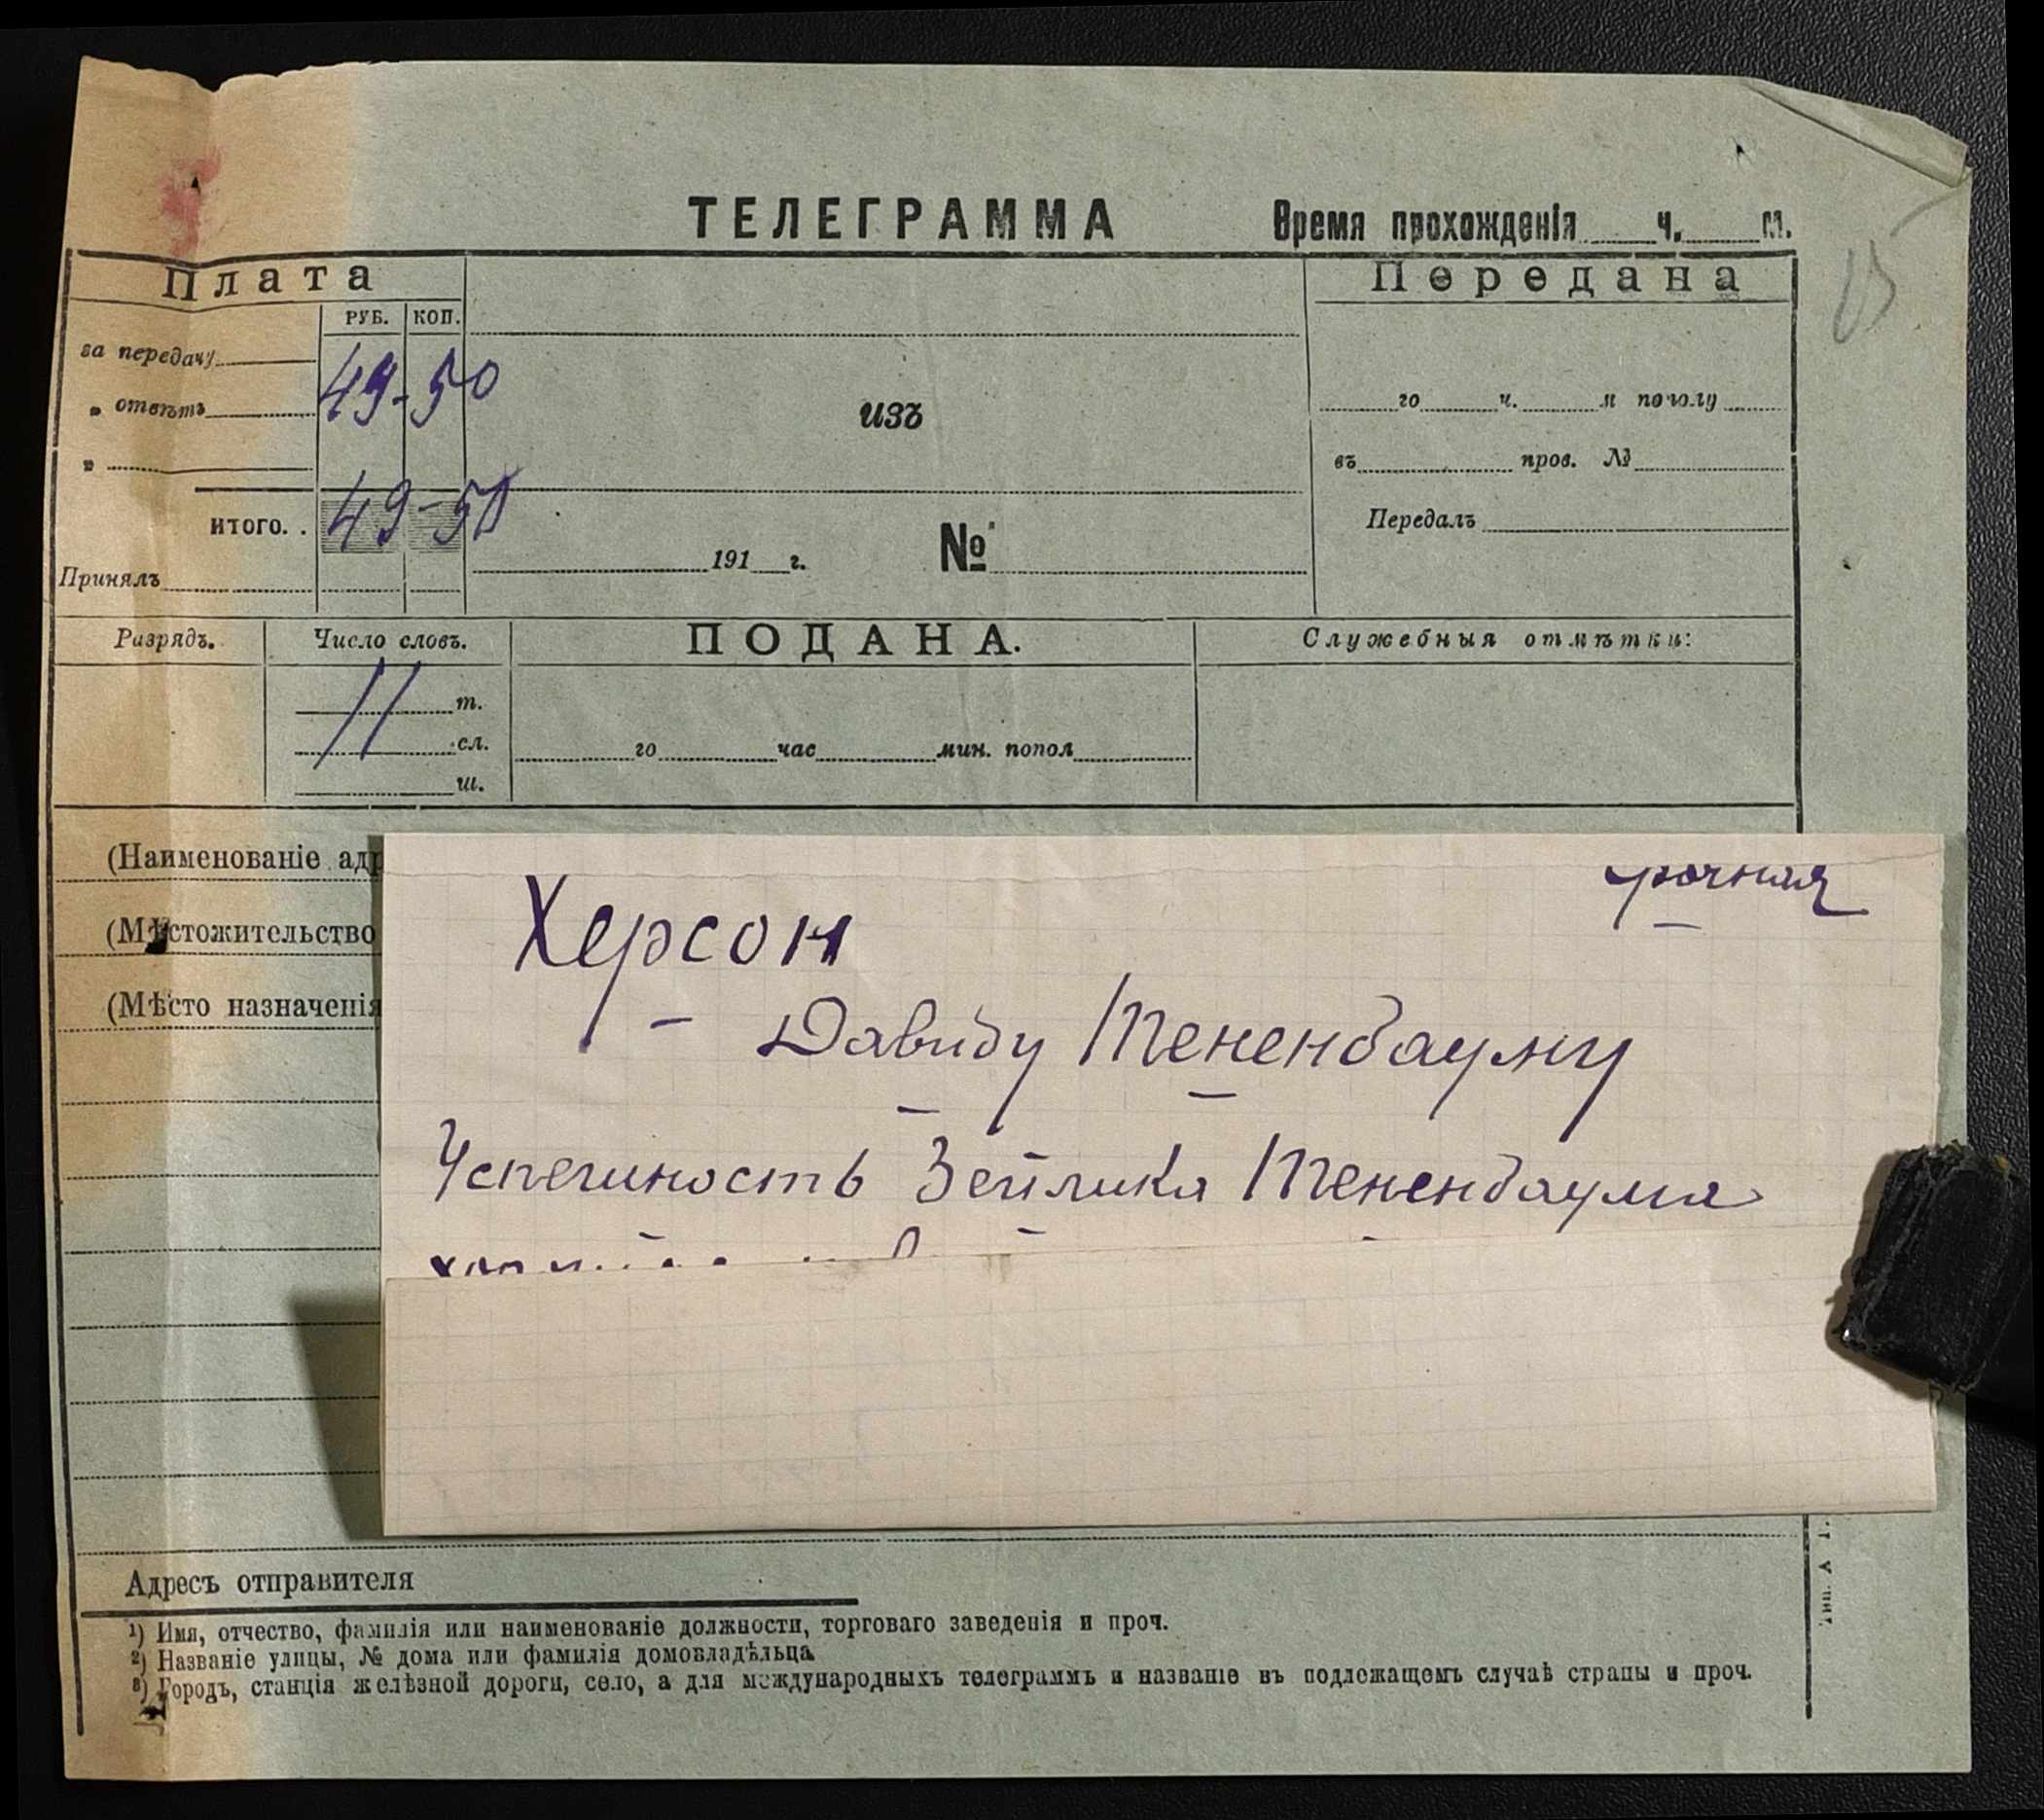 ТЕЛЕГРАММА Время прохожденія ч. м.
Плата
РУБ. КОП.
за передачу
49-50
" отвѣтъ
"
итого. . 49-50
Принялъ
изъ
191 г. №
Передана
го ч. м пополу
въ пров. №
Передалъ
85
Разрядъ.
Число словъ.
11
т.
сл.
ш.
ПОДАНА.
го час мин. попол
Служебныя отмѣтки:
(Наименованіе адр
(Мѣстожительство
(Мѣсто назначенія
срочная
Херсон
Давиду Тененбауму
Успешность Зейлика Тененбаума
Адресъ отправителя
¹) Имя, отчество, фамилія или наименованіе должности, торговаго заведенія и проч.
²) Названіе улицы, № дома или фамилія домовладѣльца
³) Городъ, станція желѣзной дороги, село, а для международныхъ телеграммъ и названіе въ подлежащемъ случаѣ страны и проч.